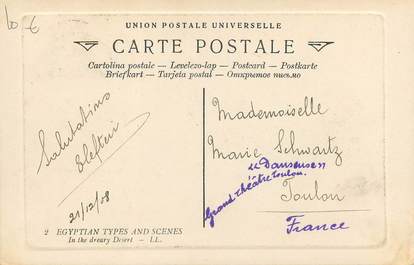 10 €
UNION POSTALE UNIVERSELLE
CARTE POSTALE
Cartolina postale — Levelezo-lap — Postcard — Postkarte
Briefkart — Tarjeta postal — Открытое письмо
Salutations
Elefteri
21/12/08
Mademoiselle
Marie Schwartz
"Danseuse"
Grand théâtre Toulon.
Toulon
France
2 EGYPTIAN TYPES AND SCENES
In the dreary Desert - LL.